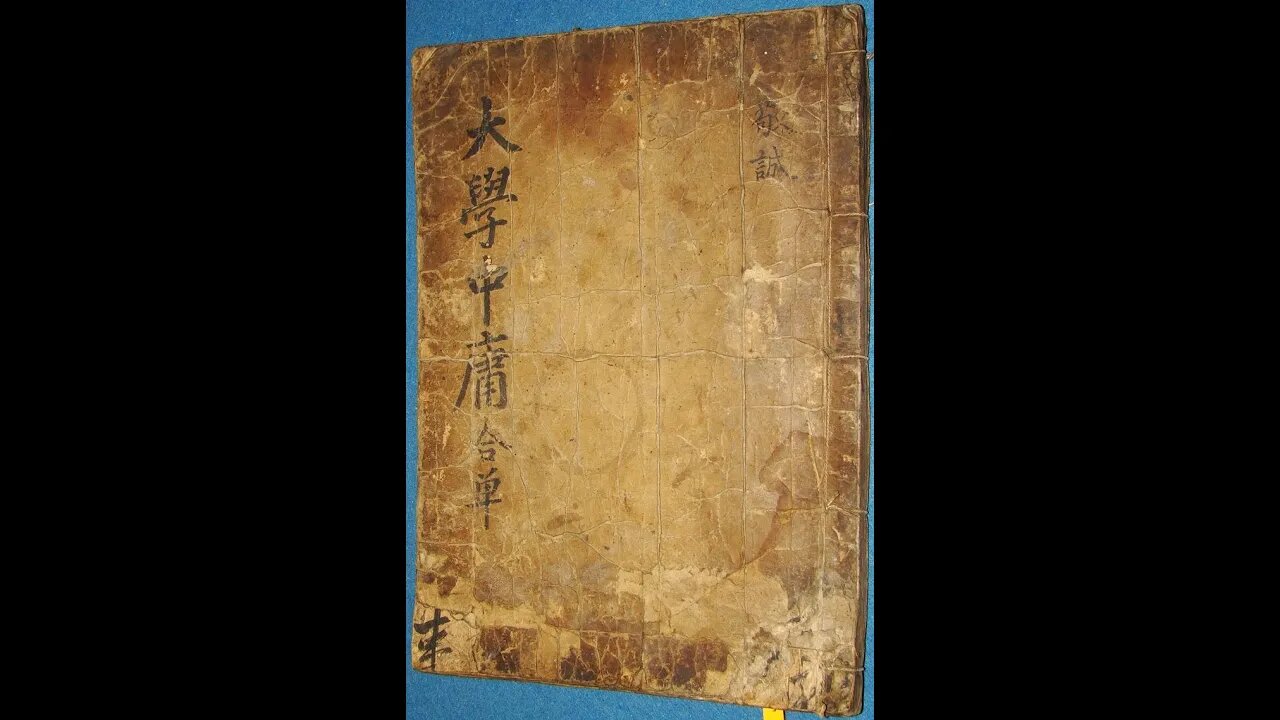 敬誠
大學中庸合單